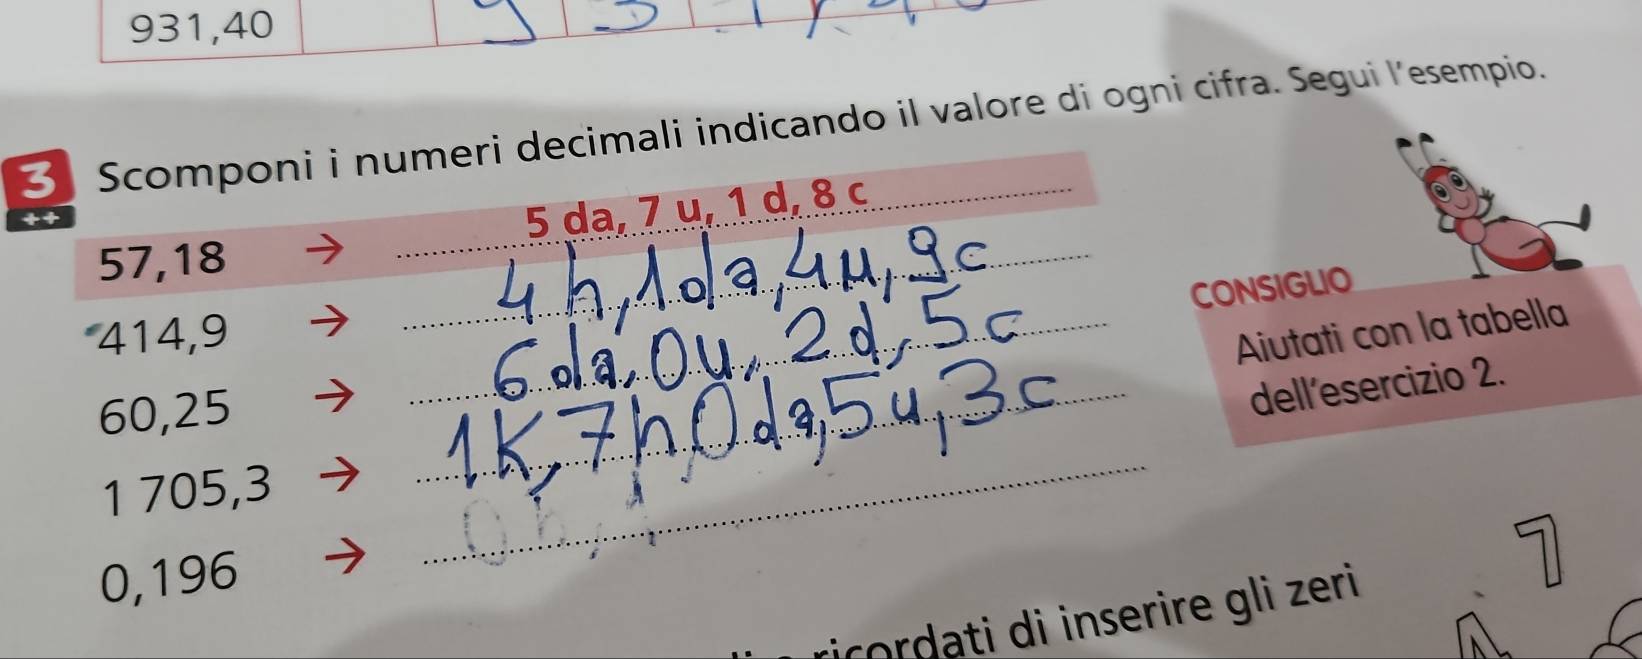 931,40
3 Scomponi i numeri decimali indicando il valore di ogni cifra. Segui l'esempio.
++
57,18 → 5 da, 7 u, 1 d, 8 c
414,9 → 4h, 1da, 4u, 9c
60,25 → 6da, 0u, 2d, 5c
1 705,3 → 1K, 7h, 0da, 5u, 3c
0,196 →
CONSIGLIO
Aiutati con la tabella
dell'esercizio 2.
ricordati di inserire gli zeri
7